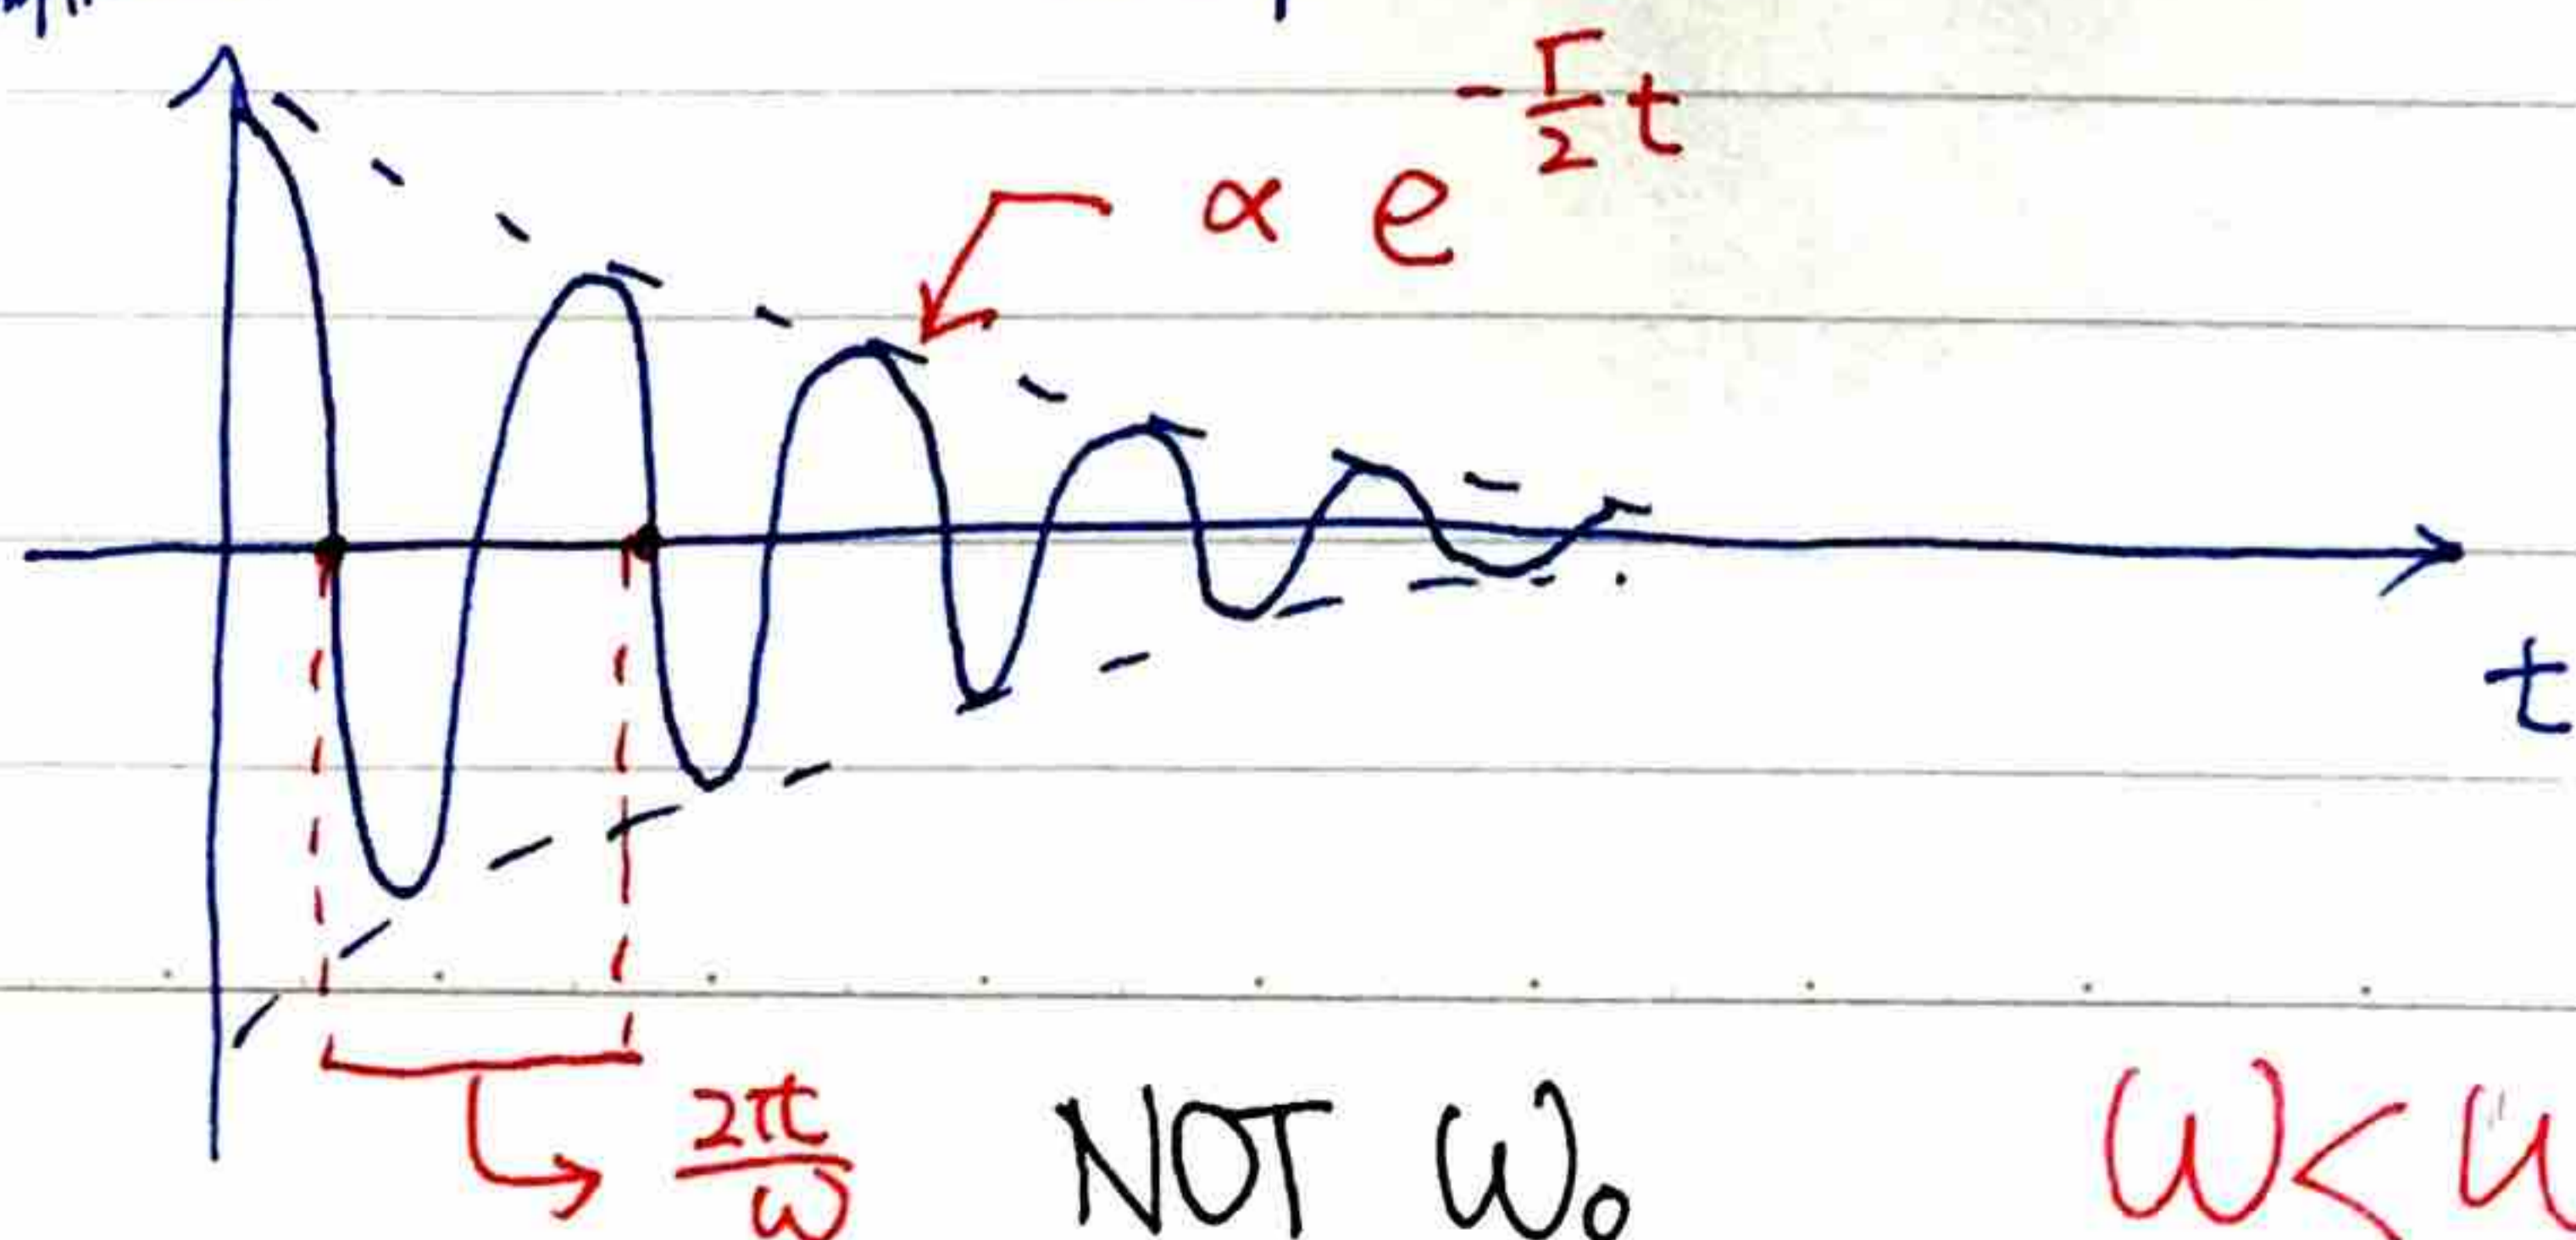 ∝ e^{-\frac{Γ}{2}t}
t
\frac{2π}{ω} NOT ω₀ ω<